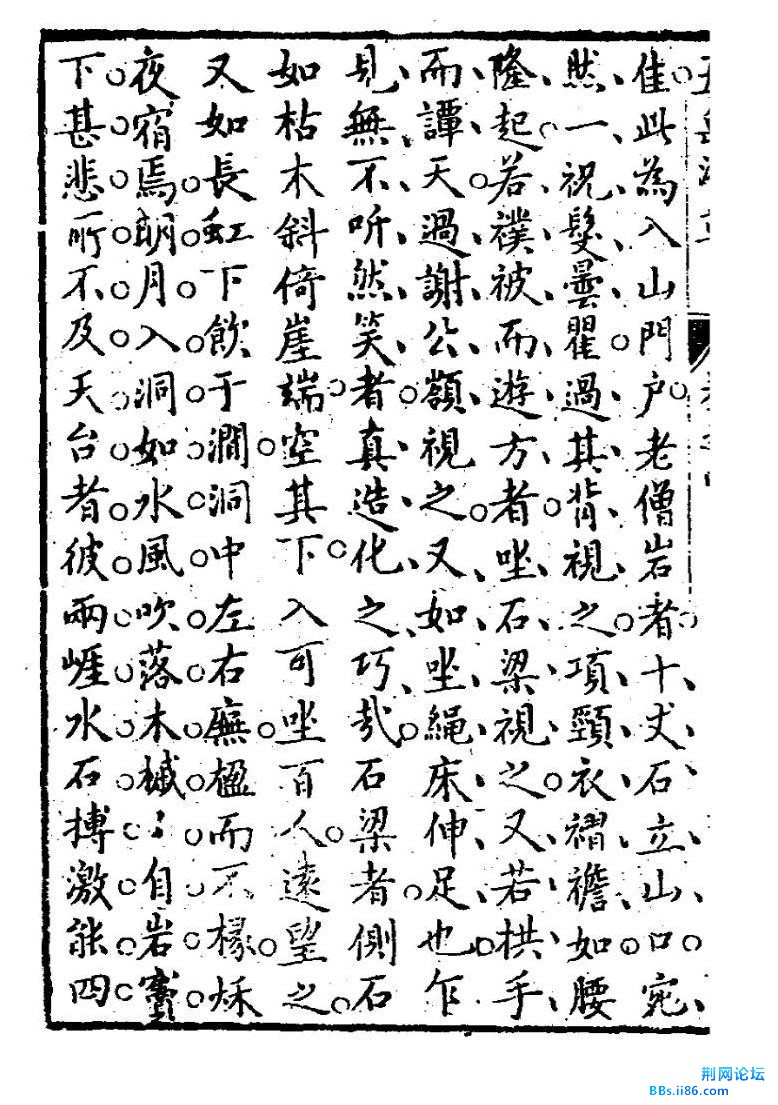 佳此為入山門户老僧岩者十丈石立山口宛
然一祝髮曇瞿過其背視之項頸衣褶襜如腰
隆起若襆被而遊方者坐石梁視之又若拱手
而譚天過謝公額視之又如坐繩床伸足也乍
見無不听然笑者真造化之巧哉石梁者側石
如枯木斜倚崖端空其下入可坐百人遠望之
又如長虹下飲于澗洞中左右廡楹而不椽秌
夜宿焉朗月入洞如水風吹落木槭〻自岩竇
下甚悲所不及天台者彼兩崕水石搏激能四
荆网论坛
BBs.ii86.com